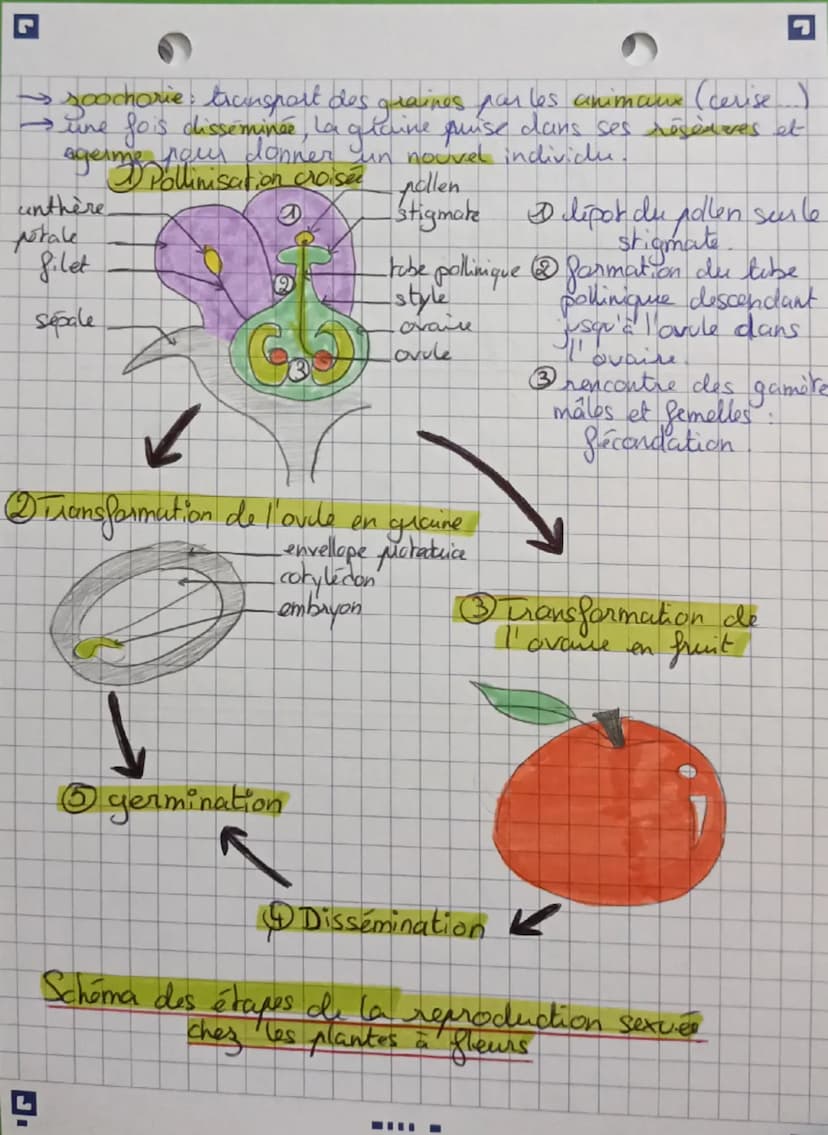 → zoochorie : transport des graines par les animaux (cerise...)
→ une fois disséminée, la graine puise dans ses réserves et
germe pour donner un nouvel individu.
① Pollinisation croisée
anthère
pétale
filet
sépale
pollen
stigmate
tube pollinique
style
ovaire
ovule
①
②
③
① dépot du pollen sur le
stigmate.
② formation du tube
pollinique descendant
jusqu'à l'ovule dans
l'ovaire.
③ rencontre des gamète
mâles et femelles :
fécondation.
② Transformation de l'ovule en graine
envellope protectrice
cotylédon
embryon
③ Transformation de
l'ovaire en fruit
⑤ germination
④ Dissémination
Schéma des étapes de la reproduction sexuée
chez les plantes à fleurs